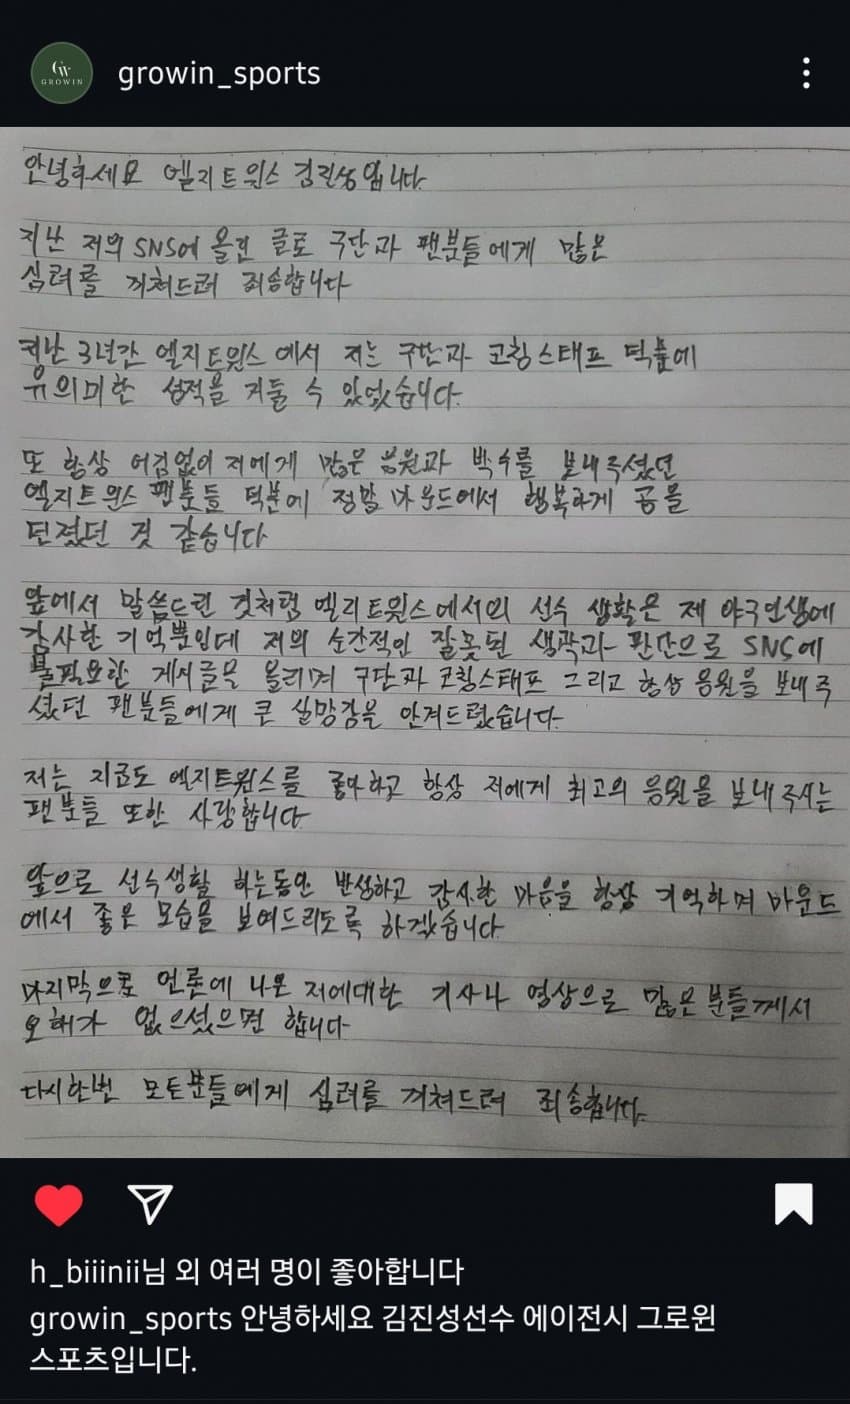 Gw
GROWIN
growin_sports
안녕하세요 엘지트윈스 김진성입니다
지난 저의 SNS에 올린 글로 구단과 팬분들에게 많은
심려를 끼쳐드려 죄송합니다
지난 3년간 엘지트윈스에서 저는 구단과 코칭스태프 덕분에
유의미한 성적을 거둘 수 있었습니다.
또 항상 어김없이 저에게 많은 응원과 박수를 보내주셨던
엘지트윈스 팬분들 덕분에 정말 마운드에서 행복하게 공을
던졌던 것 같습니다
앞에서 말씀드린 것처럼 엘지트윈스에서의 선수 생활은 제 야구인생에
감사한 기억뿐인데 저의 순간적인 잘못된 생각과 판단으로 SNS에
불필요한 게시글을 올리며 구단과 코칭스태프 그리고 항상 응원을 보내주
셨던 팬분들에게 큰 실망감을 안겨드렸습니다.
저는 지금도 엘지트윈스를 좋아하고 항상 저에게 최고의 응원을 보내주시는
팬분들 또한 사랑합니다
앞으로 선수생활 하는동안 반성하고 감사한 마음을 항상 기억하며 마운드
에서 좋은 모습을 보여드리도록 하겠습니다
마지막으로 언론에 나온 저에대한 기사나 영상으로 많은분들께서
오해가 없으셨으면 합니다
다시한번 모든분들에게 심려를 끼쳐드려 죄송합니다.
h_biiinii님 외 여러 명이 좋아합니다
growin_sports 안녕하세요 김진성선수 에이전시 그로윈
스포츠입니다.